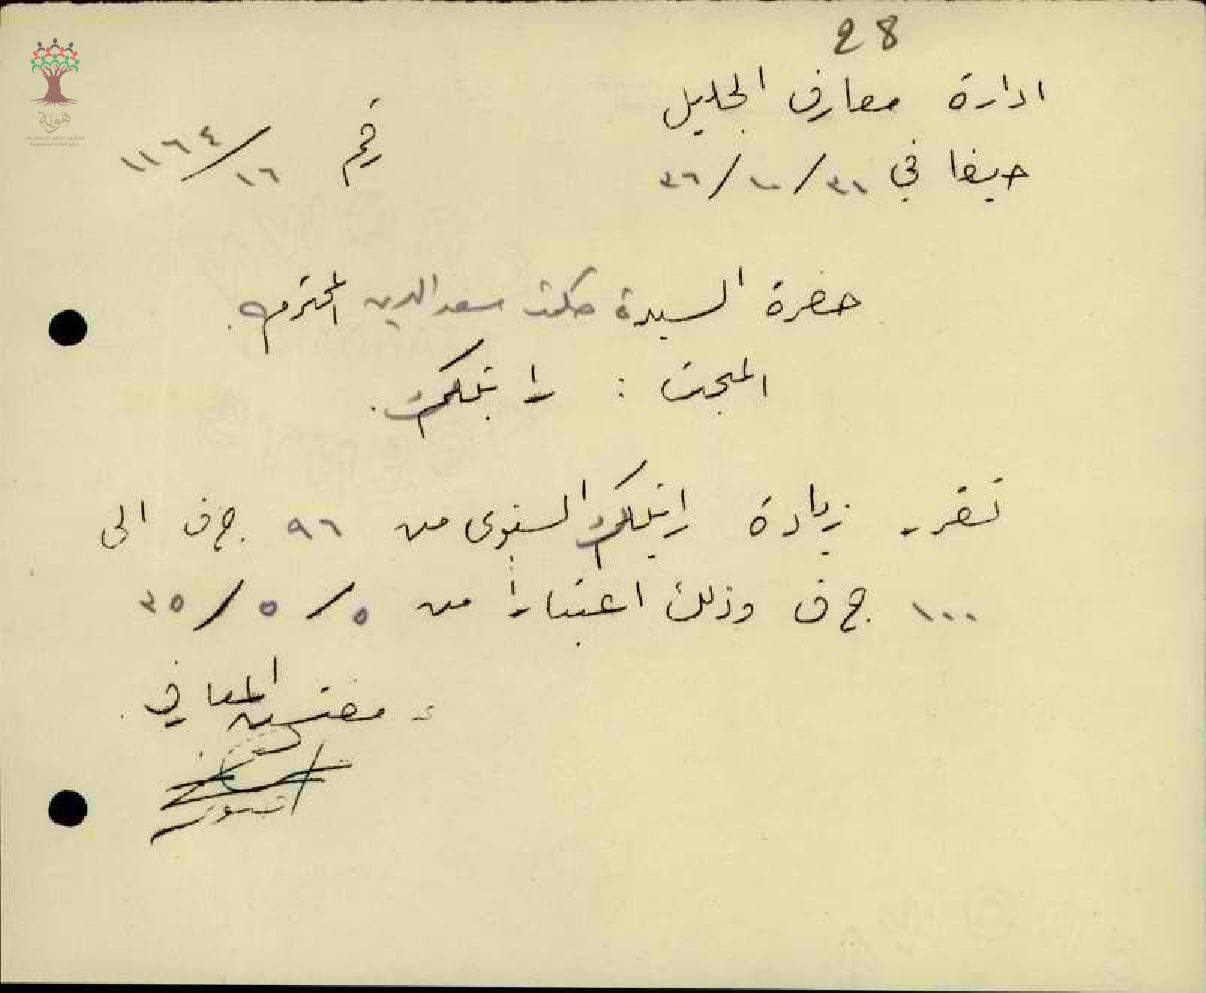 28
ادارة معارف الجليل
حيفا في ٣١/١٠/٣٦ رقم ١٦/١١٦٤
حضرة السيدة حكمت سعد الدين المحترمه.
المبحث : راتبكم.
تقرر زيادة راتبكم السنوى من ٩٦ ج ف الى
١٠٠ ج ف وذلك اعتباراً من ٥/٥/٣٥
مفتش المعارف
هوية